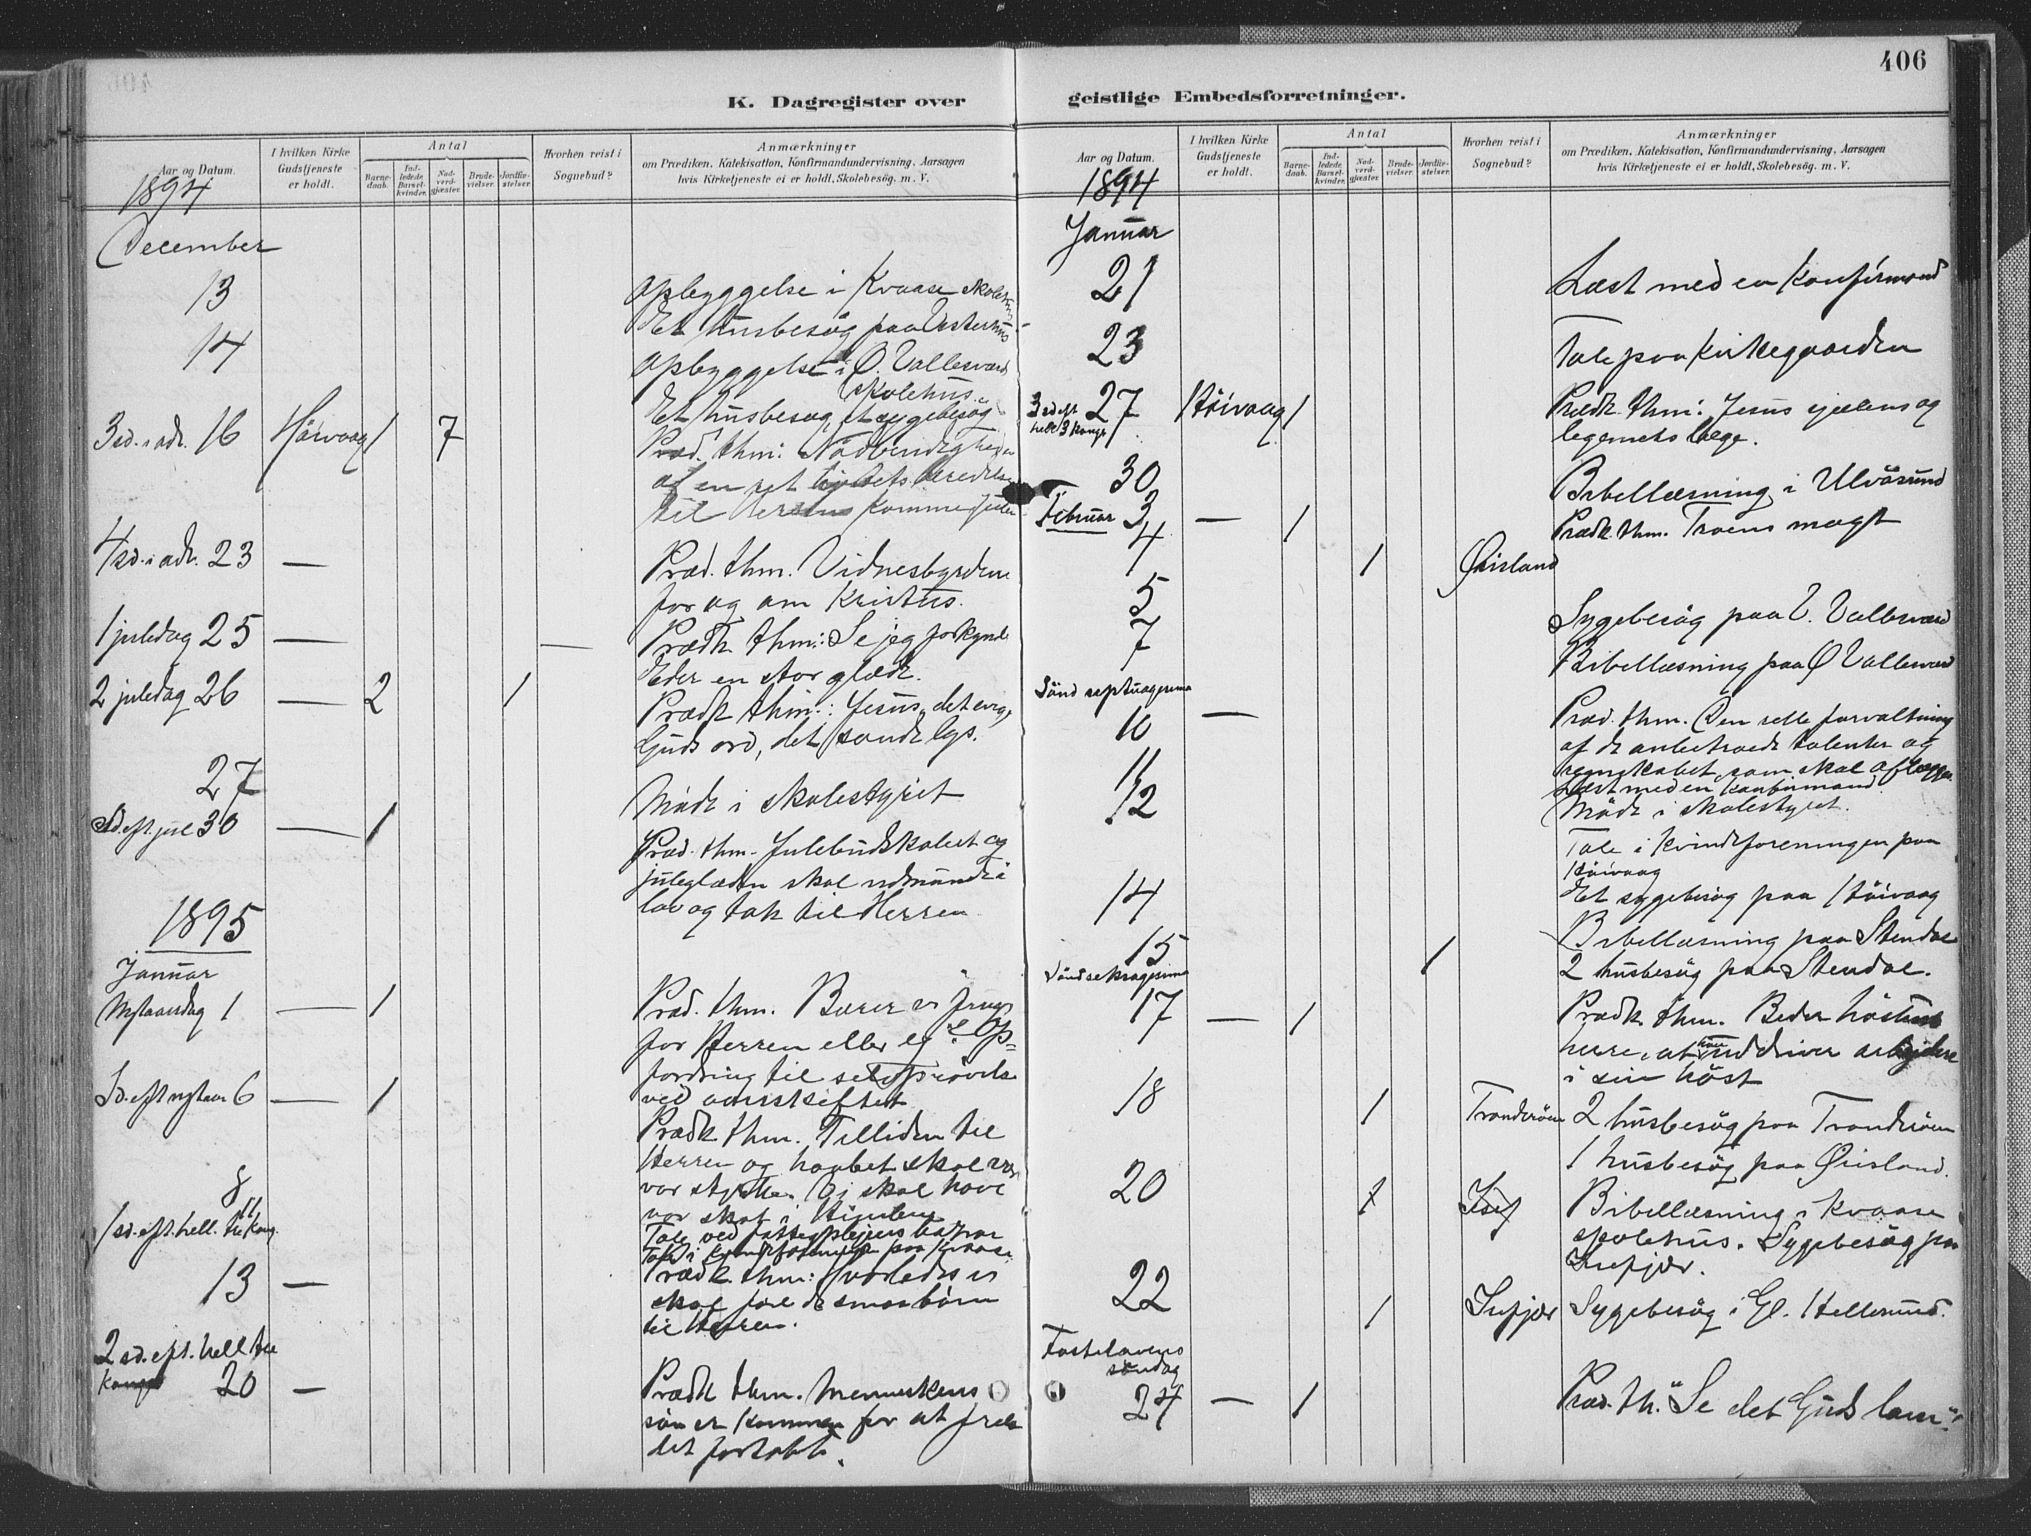 406
K. Dagregister over
Aar og Datum.
I hvilken Kirke
Gudstjeneste
er holdt.
Antal
Barne-
daab.
Ind-
ledede
Barsel-
kvinder.
Nad-
verd-
gjæster.
Brude-
vielser.
Jordfæ-
stelser.
Hvorhen reist i
Sognebud?
Anmærkninger
om Prædiken, Katekisation, Konfirmandundervisning, Aarsagen
hvis Kirketjeneste ei er holdt, Skolebesøg. m. V.
1894
December
13 Opbyggelse i Kvaase skolehus
Et husbesøg paa Vesterhus
14 Opbyggelse i Ø. Vallesværd
skolehus.
Et husbesøg, et sygebesøg
3 sd. i adv. 16 Høivaag 1 7 Præd. thm: Nødvendigheden
af en ret beredelse
til Herrens komme
4 sd. i adv. 23 — Præd. thm. Vidnesbyrdene
for og om Kristus.
1 juledag 25 — — Prædk thm: Se jeg forkynder
Eder en stor glæde.
2 juledag 26 — 2 1 Prædk thm: Jesus, det evige
Guds ord, det sande lys.
27 Møde i skolestyret
Sd eft jul 30 — 1 Præd. thm. Julebudskabet og
juleglæden skal udmunde i
lov og tak til Herren.
1895
Januar
Nytaarsdag 1 — 1 Præd. thm. Bærer vi frugt
for Herren eller ej? Op-
fordring til selvprøvelse
ved aarsskiftet
Sd. eft nytaar 6 — 1 Prædk thm. Tilliden til
Herren og haabet skal være
vor styrke. Vi skal have
vor skat i Himlen
8 Tale ved fattigplejens
11 Tale i kvindeforeningen paa Kvaase
1 sd. eft. hell. tre kong.
13 — Prædk thm: Hvorledes vi
skal føre de smaa børn
til Herren.
2 sd. eft. hell tre
konger 20 — Prædk thm. Menneskens
søn er kommen for at frelse
det fortabte.
geistlige Embedsforretninger.
Aar og Datum.
I hvilken Kirke
Gudstjeneste
er holdt.
Antal
Barne-
daab.
Ind-
ledede
Barsel-
kvinder.
Nad-
verd-
gjæster.
Brude-
vielser.
Jordfæ-
stelser.
Hvorhen reist i
Sognebud?
Anmærkninger
om Prædiken, Katekisation, Konfirmandundervisning, Aarsagen
hvis Kirketjeneste ei er holdt, Skolebesøg. m. V.
1894
Januar
21 Læst med en konfirmand
23 Tale paa kirkegaarden
3 sd eft
hell 3 kong 27 Høivaag 1 Prædk thm: Jesus sjælens og
legemets læge.
30 Bibellæsning i Ulvøsund
Februar 3 — 1 Prædk thm. Troens magt
4 1 Ørisland
5 Sygebesøg paa V. Vallesværd
7 Bibellæsning paa Ø Vallesværd
Sønd septuagesima
10 — Præd. thm. Den rette forvaltning
af de anbetroede talenter og
regnskabet, som skal aflægges
11 Læst med en konfirmand
12 Møde i skolestyret.
Tale i kvindeforeningen paa
Høivaag
14 Et sygebesøg paa Høivaag
Bibellæsning paa Stendal
15 1 2 husbesøg paa Stendal.
Sønd seksagesima
17 — 1 Prædk thm. Beder høstens
herre, at han uddriver arbejdere
i sin høst
18 1 Tronderøen 2 husbesøg paa Tronderøen
1 husbesøg paa Ørisland.
20 1 Bibellæsning i Kvaase
skolehus. Sygebesøg paa
Isefjær.
22 1 Isefjær Sygebesøg i Gl. Hellesund.
Fastelavens
søndag
24 — 1 Præd. th. "Se det Guds lam"